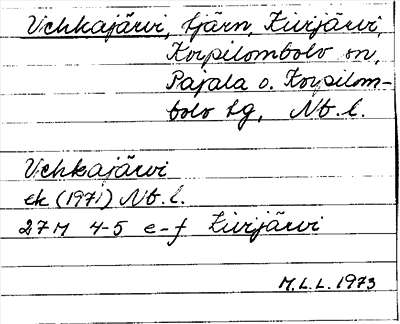 Vehkajärvi, tjärn, Kivijärvi,
Korpilombolo sn,
Pajala o. Korpilom-
bolo tg, Nb. l.
Vehkajärvi
ek (1971) Nb. l.
27M 4-5 e-f Kivijärvi
M.L.L. 1973